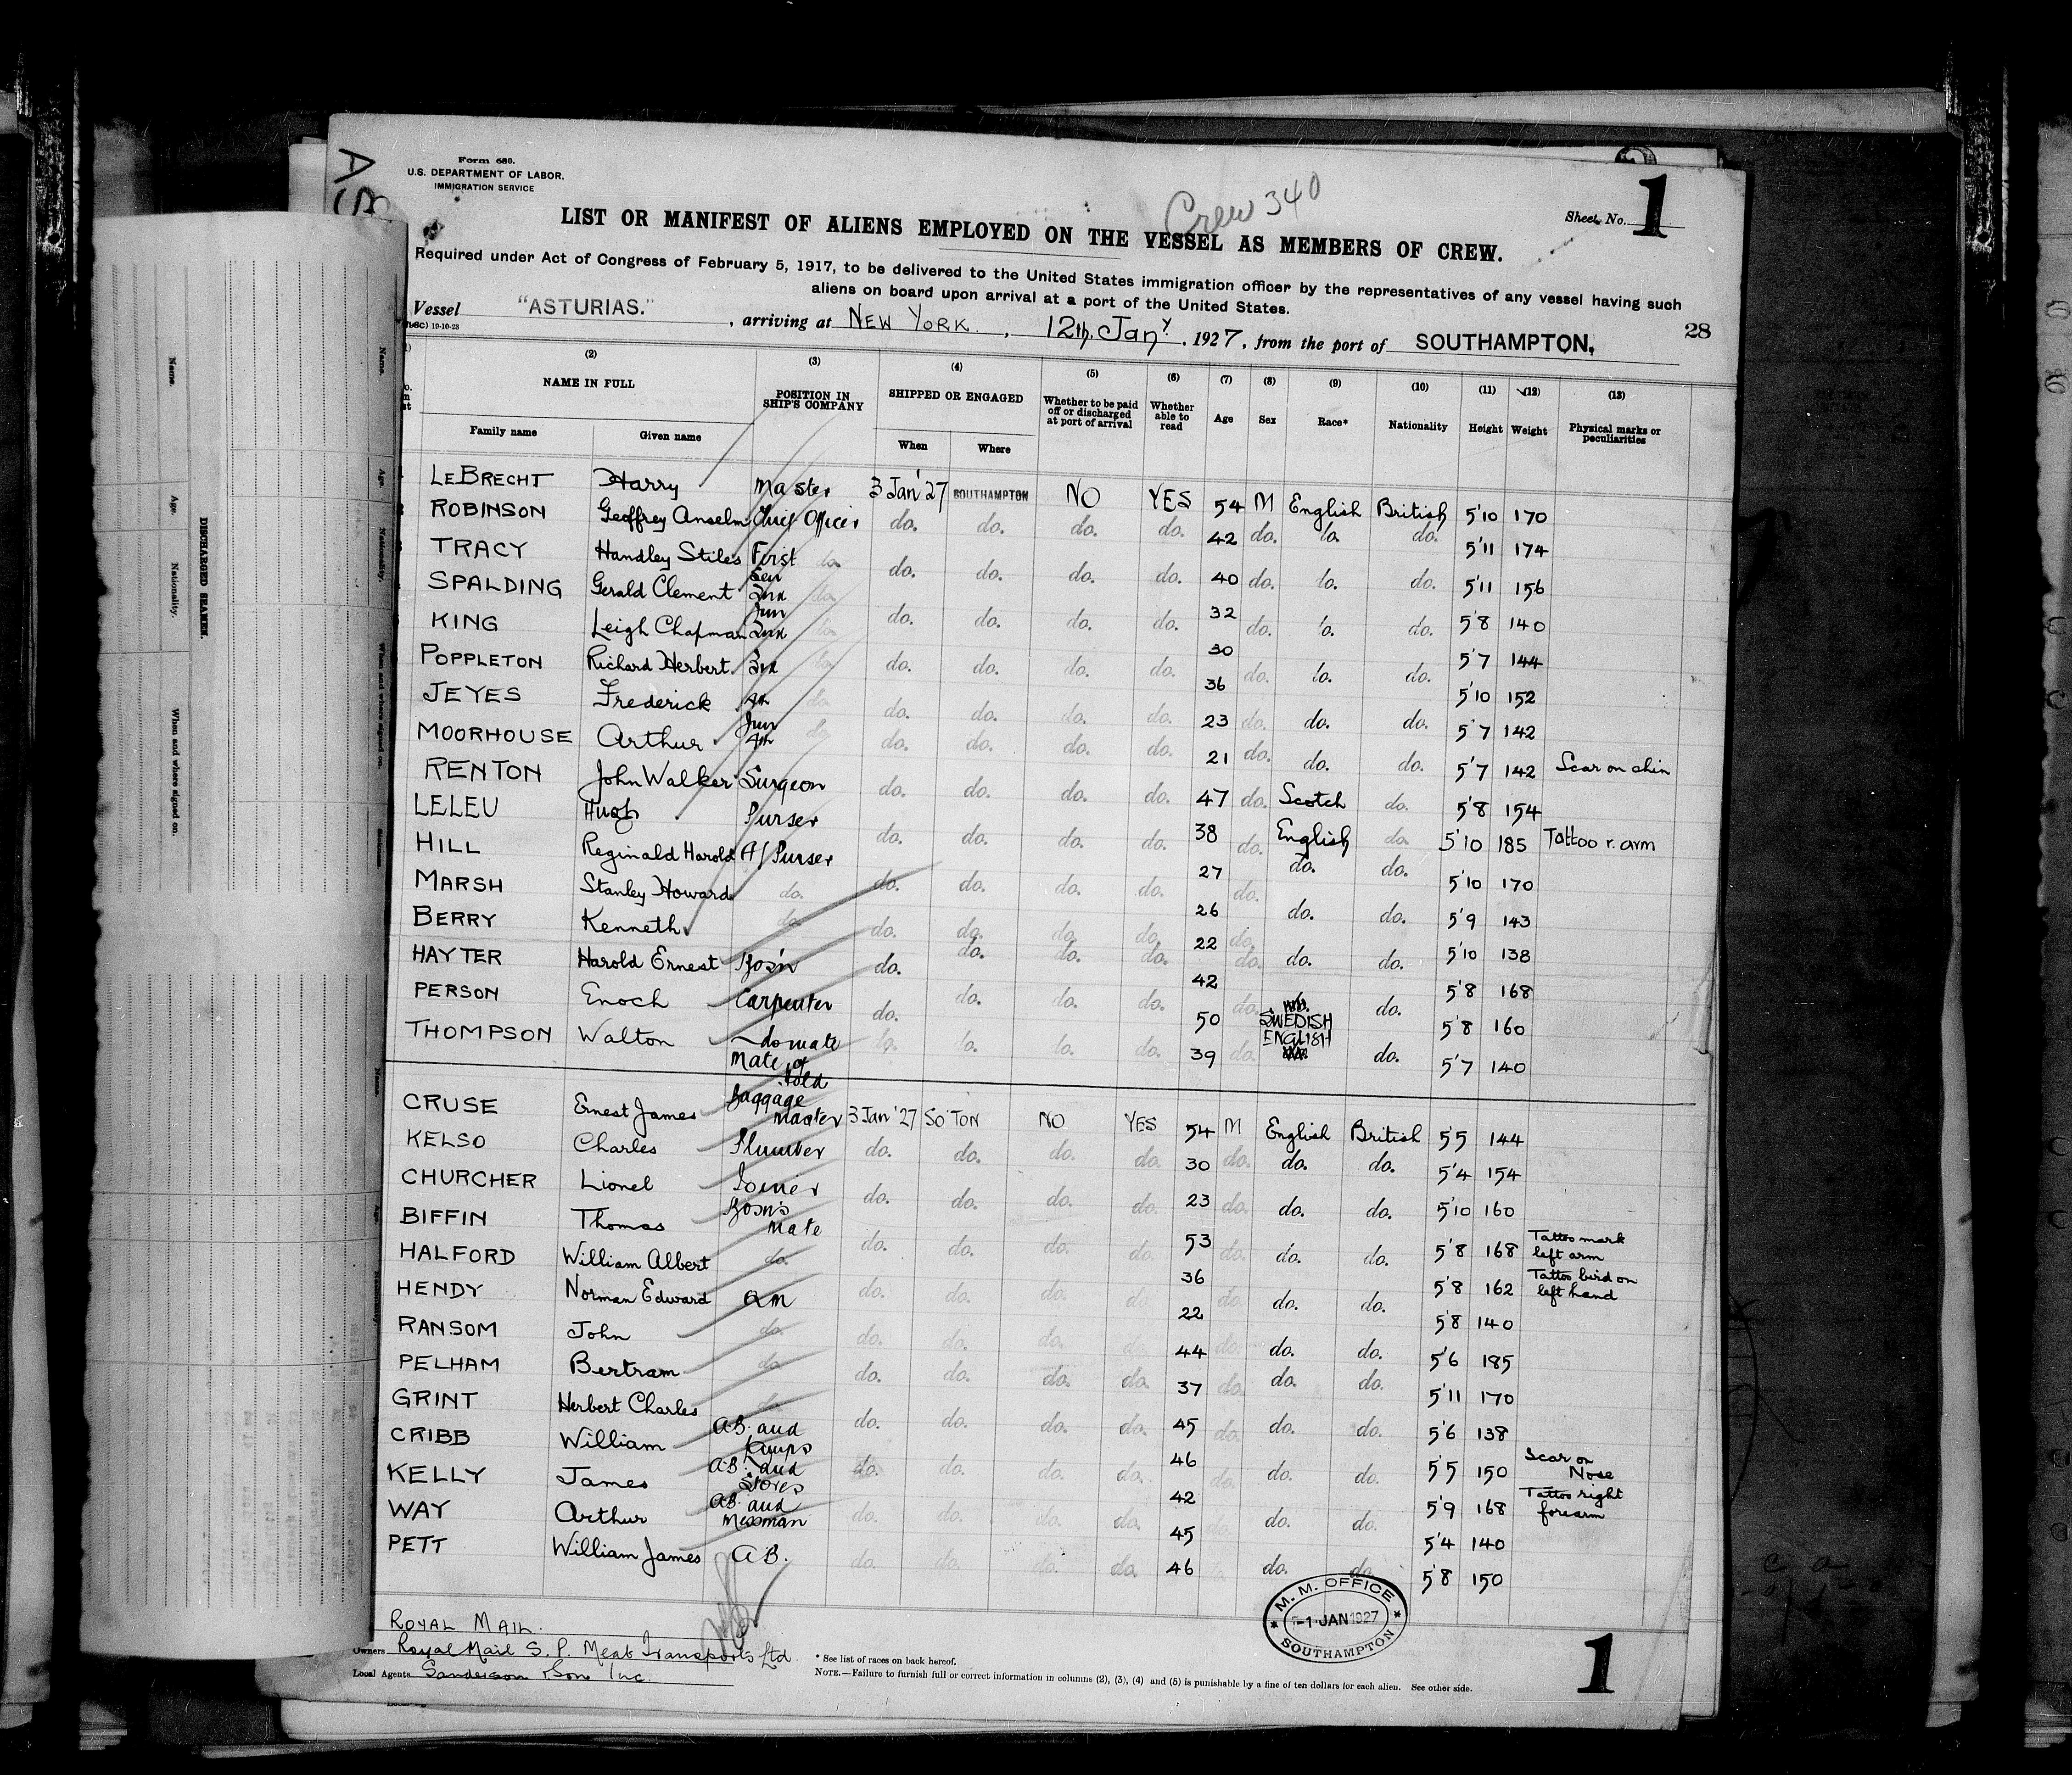 Form 680.
U.S. DEPARTMENT OF LABOR.
IMMIGRATION SERVICE
Crew 340
Sheet No. 1
LIST OR MANIFEST OF ALIENS EMPLOYED ON THE VESSEL AS MEMBERS OF CREW.
Required under Act of Congress of February 5, 1917, to be delivered to the United States immigration officer by the representatives of any vessel having such
aliens on board upon arrival at a port of the United States.
Vessel "ASTURIAS." , arriving at NEW YORK. , 12th. Jany. , 1927, from the port of SOUTHAMPTON,
19-10-23
28
(2) (3) (4) (5) (6) (7) (8) (9) (10) (11) (12) (13)
NAME IN FULL POSITION IN SHIP'S COMPANY SHIPPED OR ENGAGED Whether to be paid off or discharged at port of arrival Whether able to read Age Sex Race* Nationality Height Weight Physical marks or peculiarities
Family name Given name When Where
LEBRECHT Harry Master 3 Jan '27 SOUTHAMPTON NO YES 54 M English British 5'10 170
ROBINSON Geoffrey Anselm Chief Officer do. do. do. do. 42 do. do. do. 5'11 174
TRACY Handley Stiles First do. do. do. do. do. 40 do. do. do. 5'11 156
SPALDING Gerald Clement Sen 2nd do. do. do. do. do. 32 do. do. do. 5'8 140
KING Leigh Chapman Jun 2nd do. do. do. do. do. 30 do. do. do. 5'7 144
POPPLETON Richard Herbert 3rd do. do. do. do. do. 36 do. do. do. 5'10 152
JEYES Frederick 4th do. do. do. do. do. 23 do. do. do. 5'7 142
MOORHOUSE Arthur Jun 4th do. do. do. do. do. 21 do. do. do. 5'7 142 Scar on chin
RENTON John Walker Surgeon do. do. do. do. 47 do. Scotch do. 5'8 154
LELEU Hugh Purser do. do. do. do. 38 do. English do. 5'10 185 Tattoo r. arm
HILL Reginald Harold A/Purser do. do. do. do. 27 do. do. do. 5'10 170
MARSH Stanley Howard do. do. do. do. do. 26 do. do. do. 5'9 143
BERRY Kenneth do. do. do. do. do. 22 do. do. do. 5'10 138
HAYTER Harold Ernest Bos'n do. do. do. do. 42 do. do. do. 5'8 168
PERSON Enoch Carpenter do. do. do. do. 50 do. SWEDISH do. 5'8 160
THOMPSON Walton do mate do. do. do. do. 39 do. ENGLISH do. 5'7 140
CRUSE Ernest James Mate of Hold Baggage Master 3 Jan '27 SO'TON NO YES 54 M English British 5'5 144
KELSO Charles Plumber do. do. do. do. 30 do. do. do. 5'4 154
CHURCHER Lionel Joiner do. do. do. do. 23 do. do. do. 5'10 160
BIFFIN Thomas Bosn's Mate do. do. do. do. 53 do. do. do. 5'8 168 Tattoo mark left arm
HALFORD William Albert do. do. do. do. do. 36 do. do. do. 5'8 162 Tattoo bird on left hand
HENDY Norman Edward QM do. do. do. do. 22 do. do. do. 5'8 140
RANSOM John do. do. do. do. do. 44 do. do. do. 5'6 185
PELHAM Bertram do. do. do. do. do. 37 do. do. do. 5'11 170
GRINT Herbert Charles do. do. do. do. do. 45 do. do. do. 5'6 138
CRIBB William A.B. and Lamps do. do. do. do. 46 do. do. do. 5'5 150 Scar on Nose
KELLY James A.B. and Stores do. do. do. do. 42 do. do. do. 5'9 168 Tattoo right forearm
WAY Arthur A.B. and Messman do. do. do. do. 45 do. do. do. 5'4 140
PETT William James A.B. do. do. do. do. 46 do. do. 5'8 150
M. M. OFFICE
1 JAN 1927
SOUTHAMPTON
ROYAL MAIL.
Owners Royal Mail S. P. Meat Transports Ltd.
Local Agents Sanderson & Son Inc.
* See list of races on back hereof.
NOTE.—Failure to furnish full or correct information in columns (2), (3), (4) and (5) is punishable by a fine of ten dollars for each alien. See other side.
1
DISCHARGED SEAMEN.
Name. Age. Nationality. When and where signed on.
Name. Age. Nationality. When and where signed on.